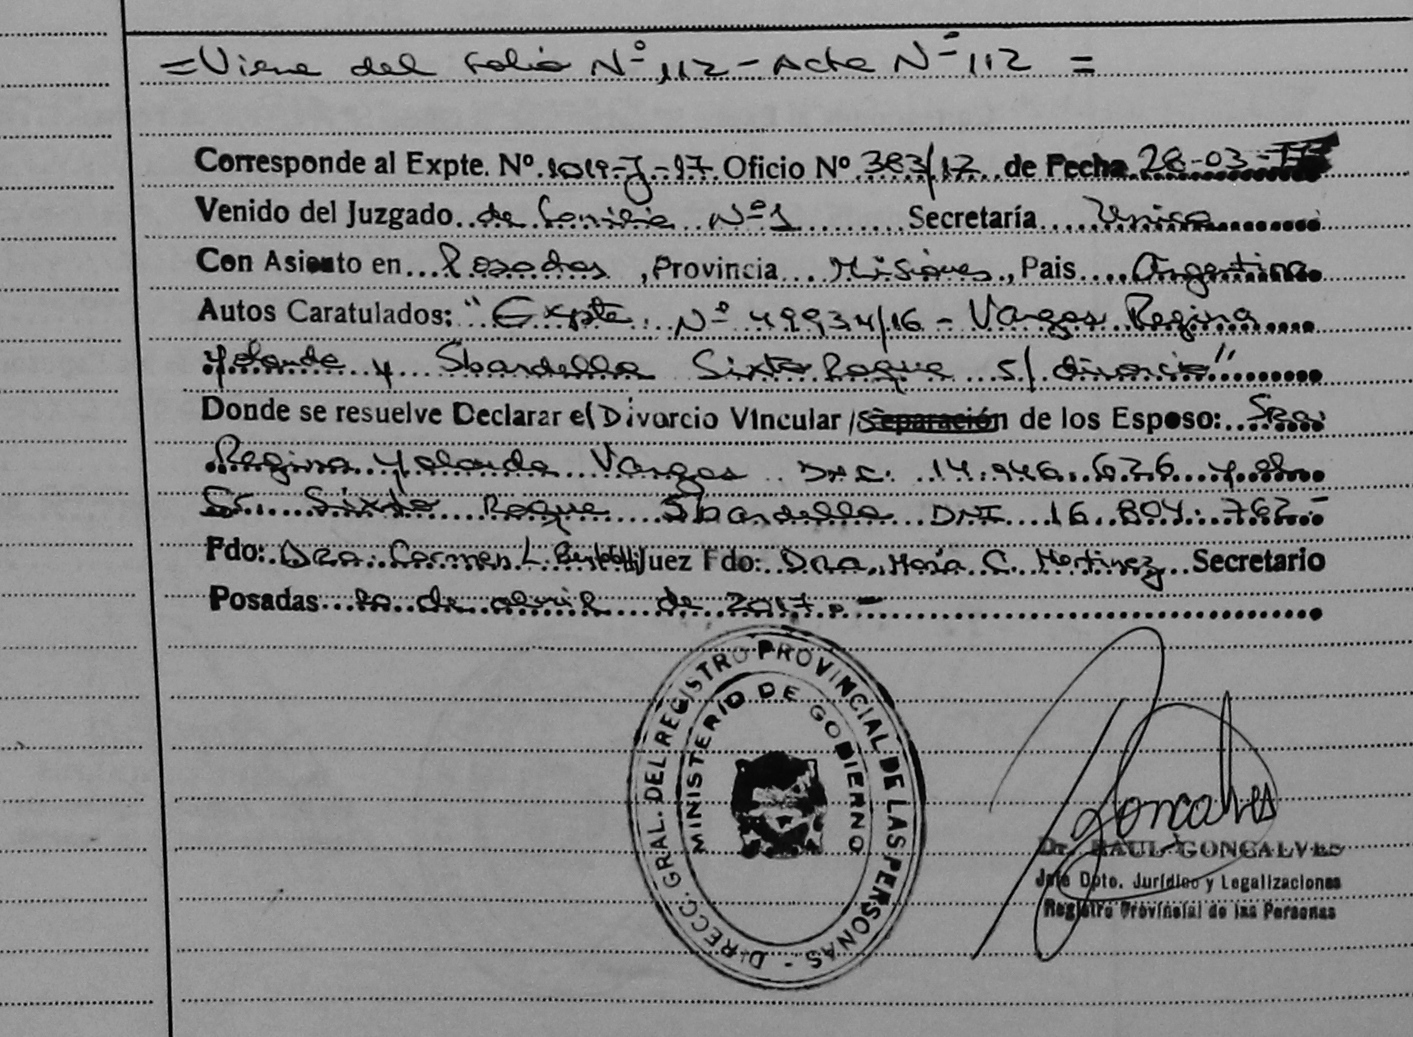 =Viene del Folio Nº 112 - Acta Nº 112 =
Corresponde al Expte. Nº 1019-J-17 Oficio Nº 383/17 de Fecha 28-03-
Venido del Juzgado de Familia Nº 1 Secretaría Unica
Con Asiento en Posadas, Provincia Misiones, Pais Argentina
Autos Caratulados: "Expte. Nº 49934/16 - Vargas Regina
Yolanda y Sbardella Sixto Roque s/ divorcio"
Donde se resuelve Declarar el Divorcio Vincular /Separación de los Esposo: Sra.
Regina Yolanda Vargas DNI. 14.946.626 y el
Sr. Sixto Roque Sbardella DNI 16.804.762.-
Fdo: Dra. Carmen L. Juez Fdo: Dra. María C. Martinez Secretario
Posadas de abril de 2017.-
DIRECC. GRAL. DEL REGISTRO PROVINCIAL DE LAS PERSONAS -
MINISTERIO DE GOBIERNO
Goncalves
Dr. RAUL GONCALVES
Jefe Dpto. Jurídico y Legalizaciones
Registro Provincial de las Personas